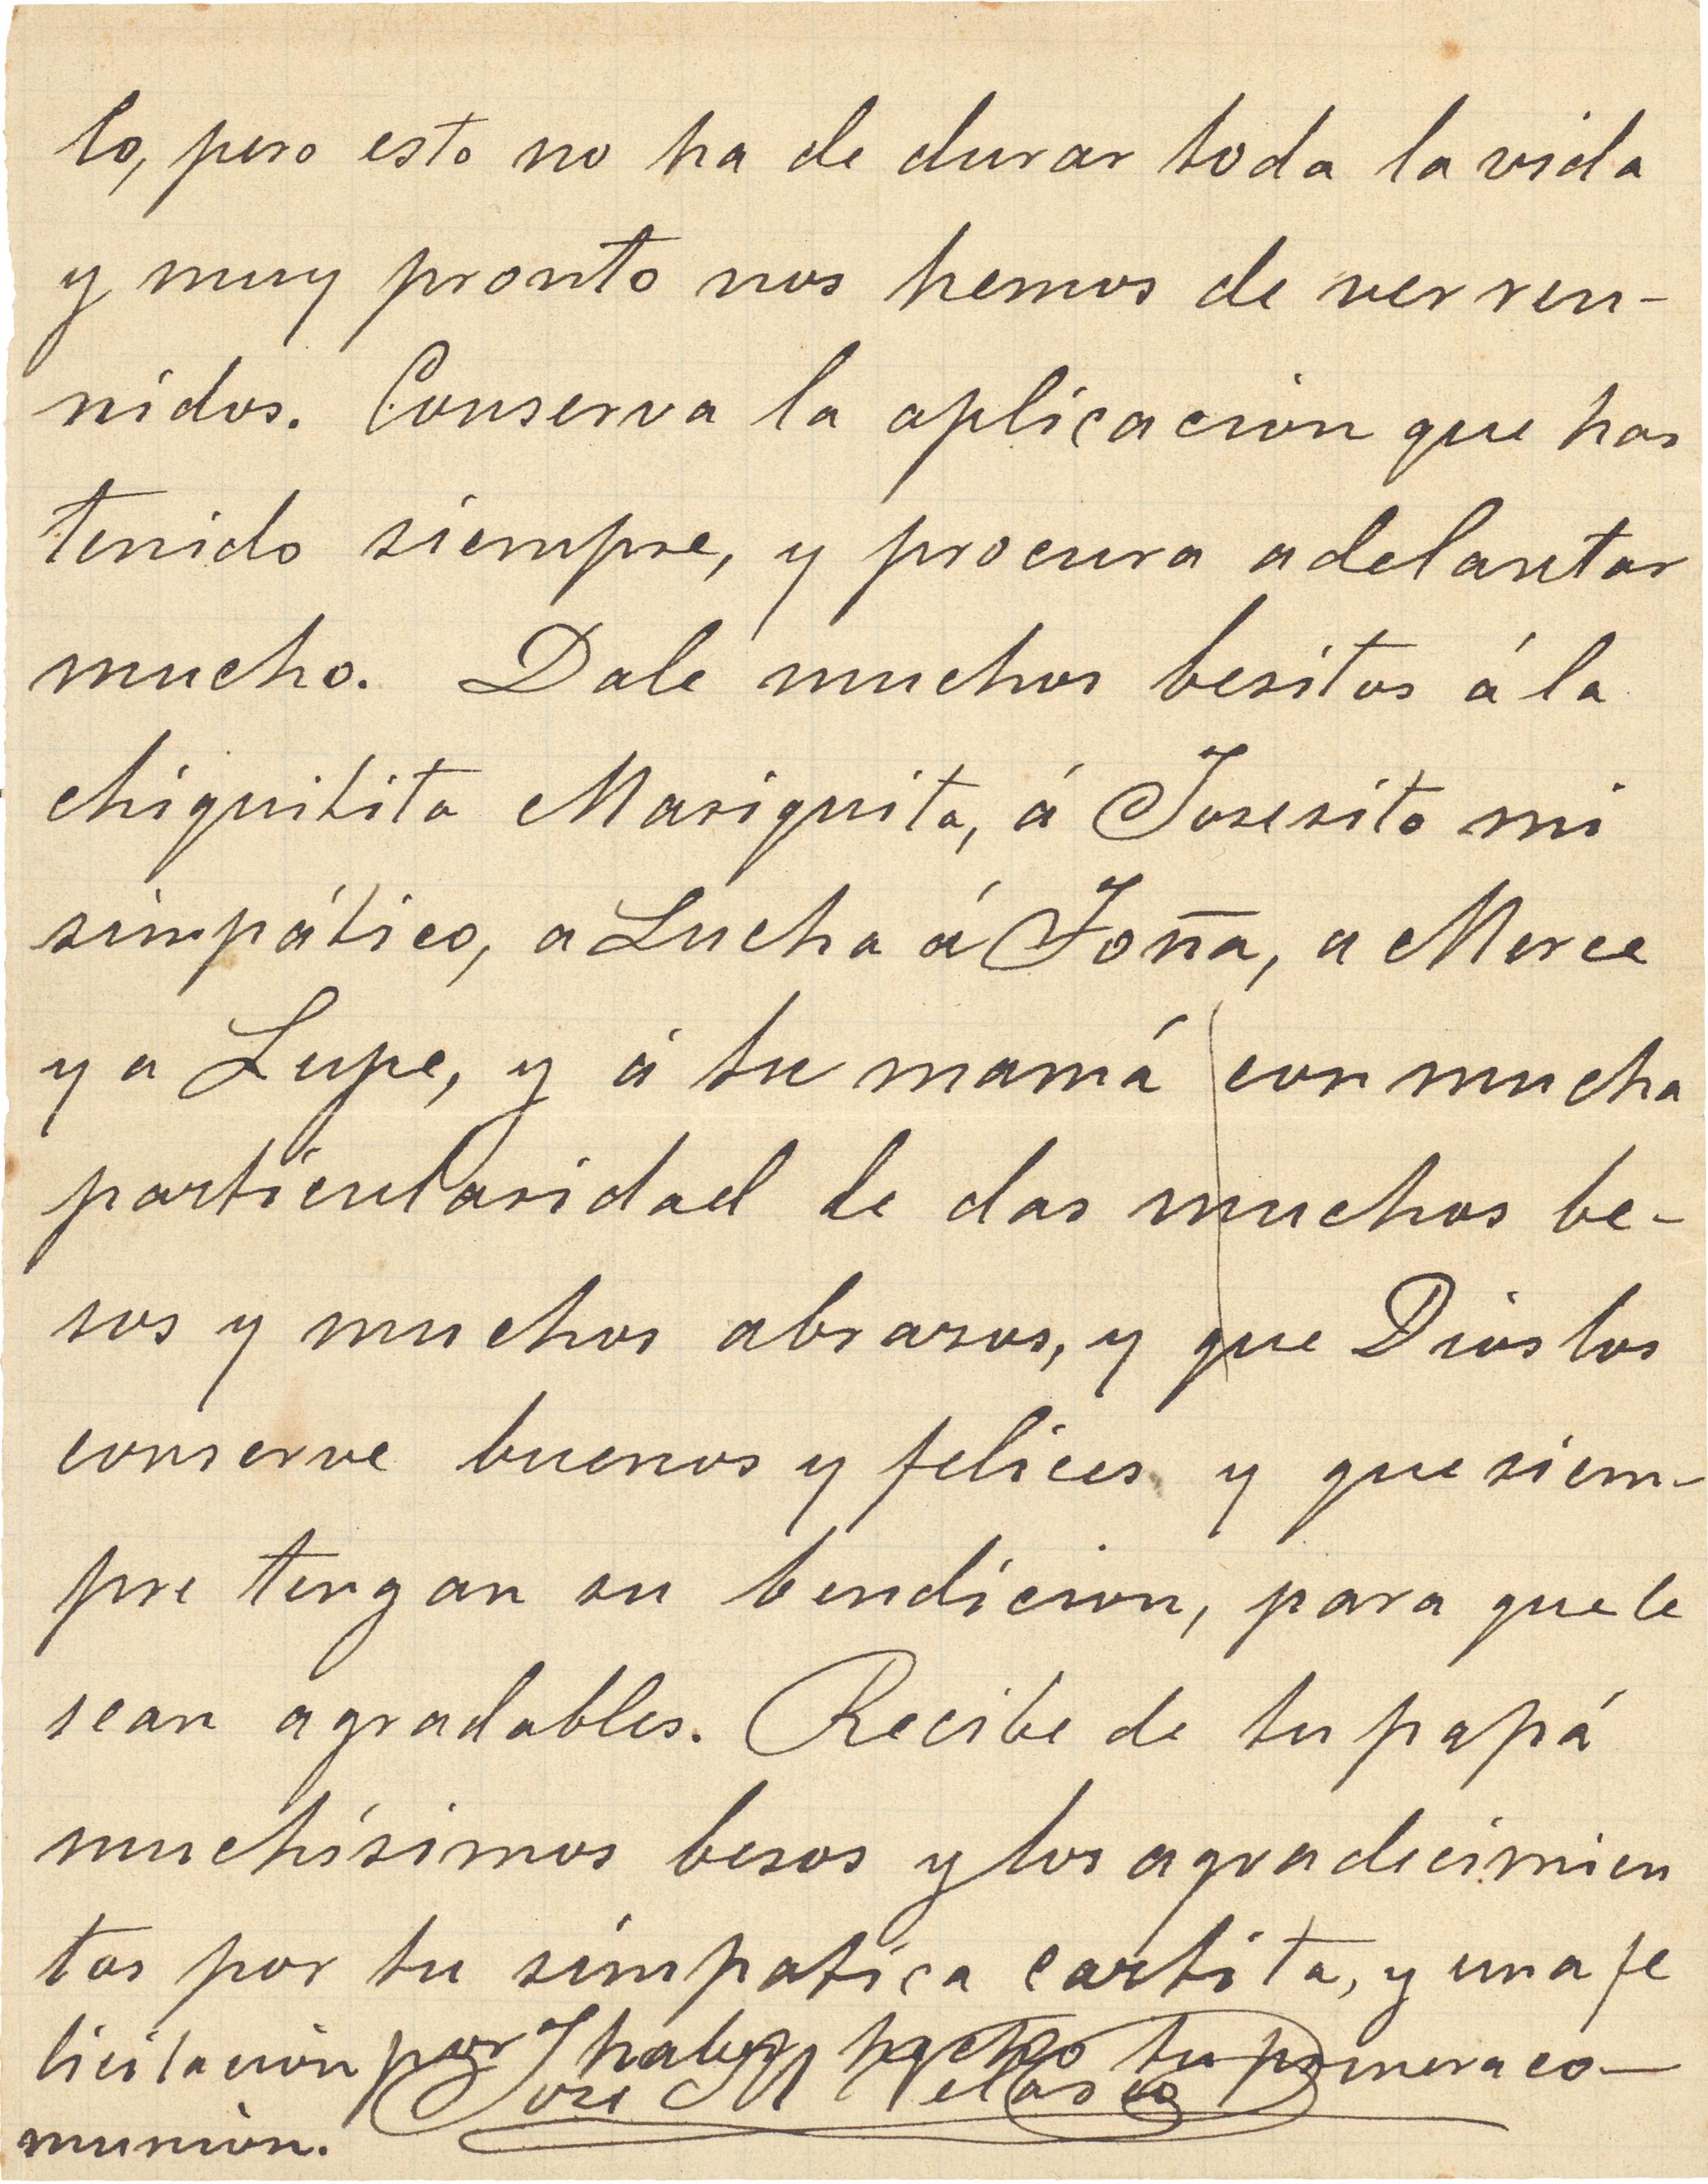 lo, pero esto no ha de durar toda la vida
y muy pronto nos hemos de ver reu-
nidos. Conserva la aplicacion que has
tenido siempre, y procura adelantar
mucho. Dale muchos besitos á la
chiquitita Mariquita, á Josesito mi
simpático, a Lucha á Toña, a Merce
y a Lupe, y á tu mamá con mucha
particularidad le das muchos be-
sos y muchos abrazos, y que Dios los
conserve buenos y felices y que siem-
pre tengan su bendicion, para que le
sean agradables. Recibe de tu papá
muchísimos besos y los agradecimien
tos por tu simpatica cartita, y una fe
licitacion por haber hecho tu primera co-
José M Velasco
munion.